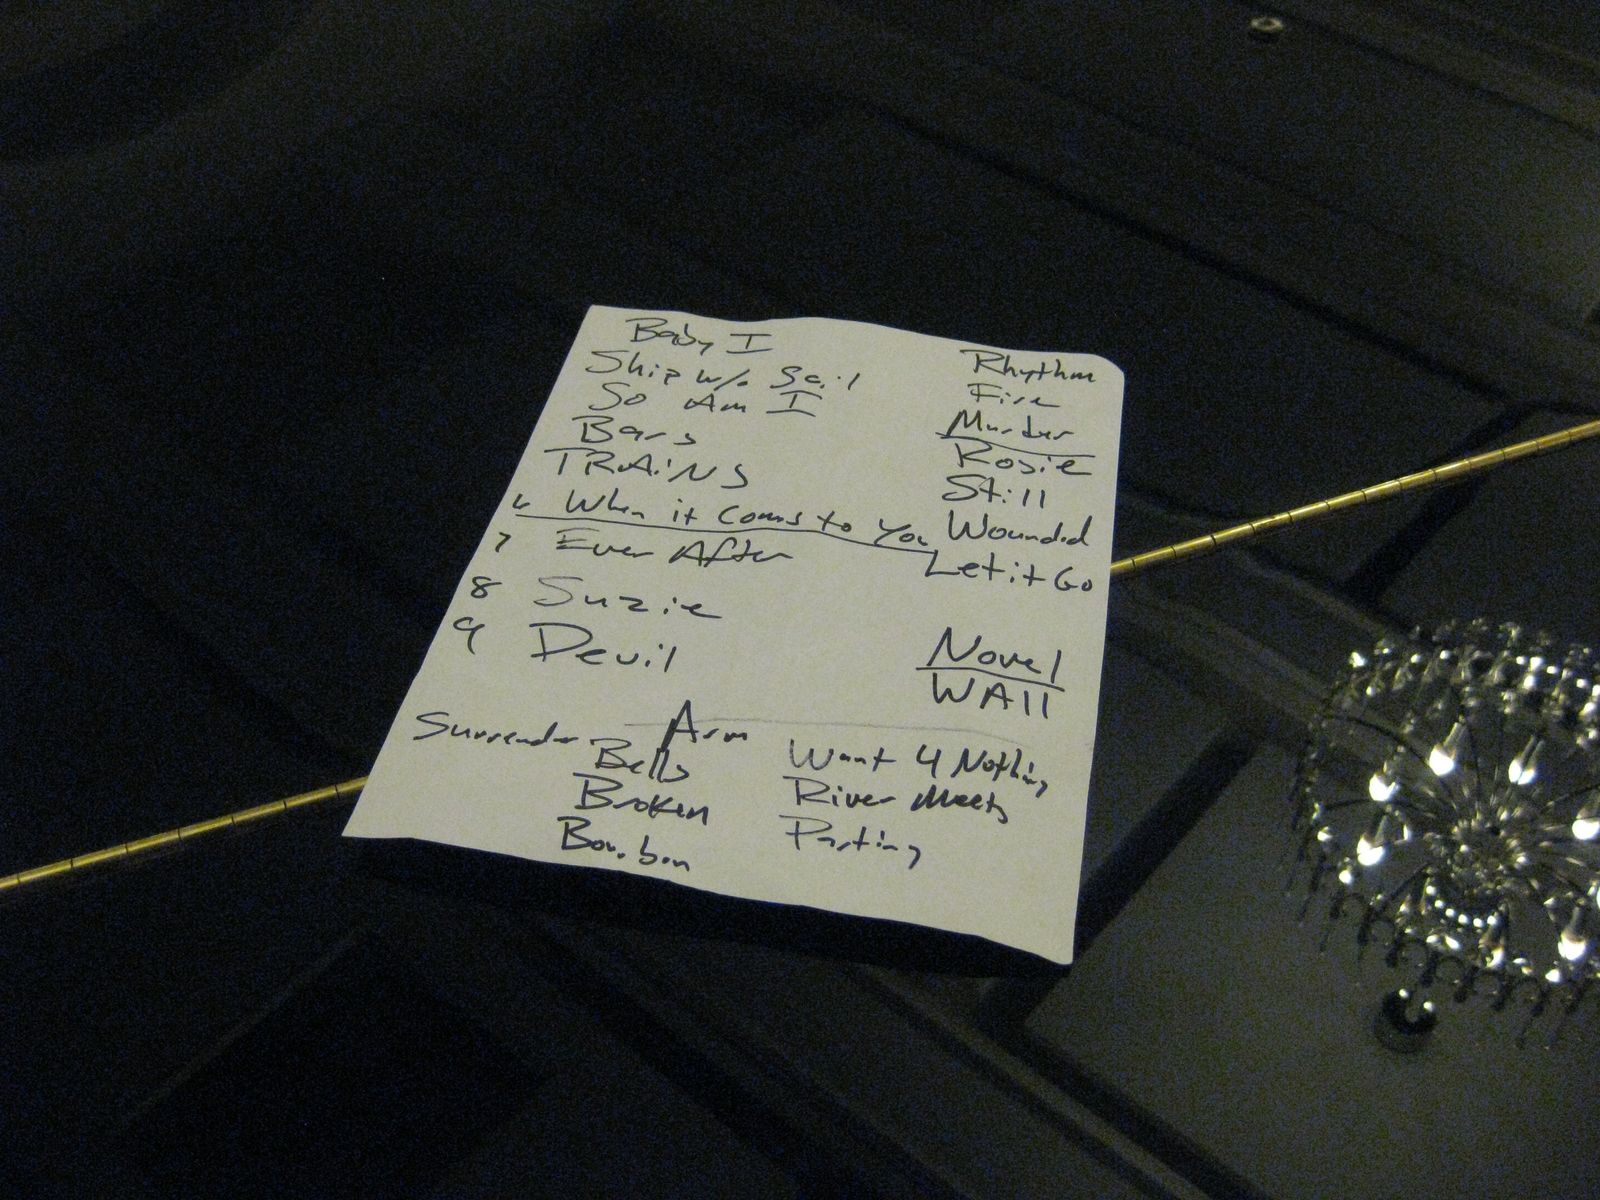 Baby I
Ship w/o Sail
So Am I
Bars
TRAiNS
6 When it Coms to You
7 Ever After
8 Suzie
9 Devil
Rhythm
Fire
Murder
Rosie
Still
Wounded
Let it Go
Novel
WAll
Surrender
Arm
Bells
Broken
Bourbon
Want 4 Nothing
River Meets
Parting